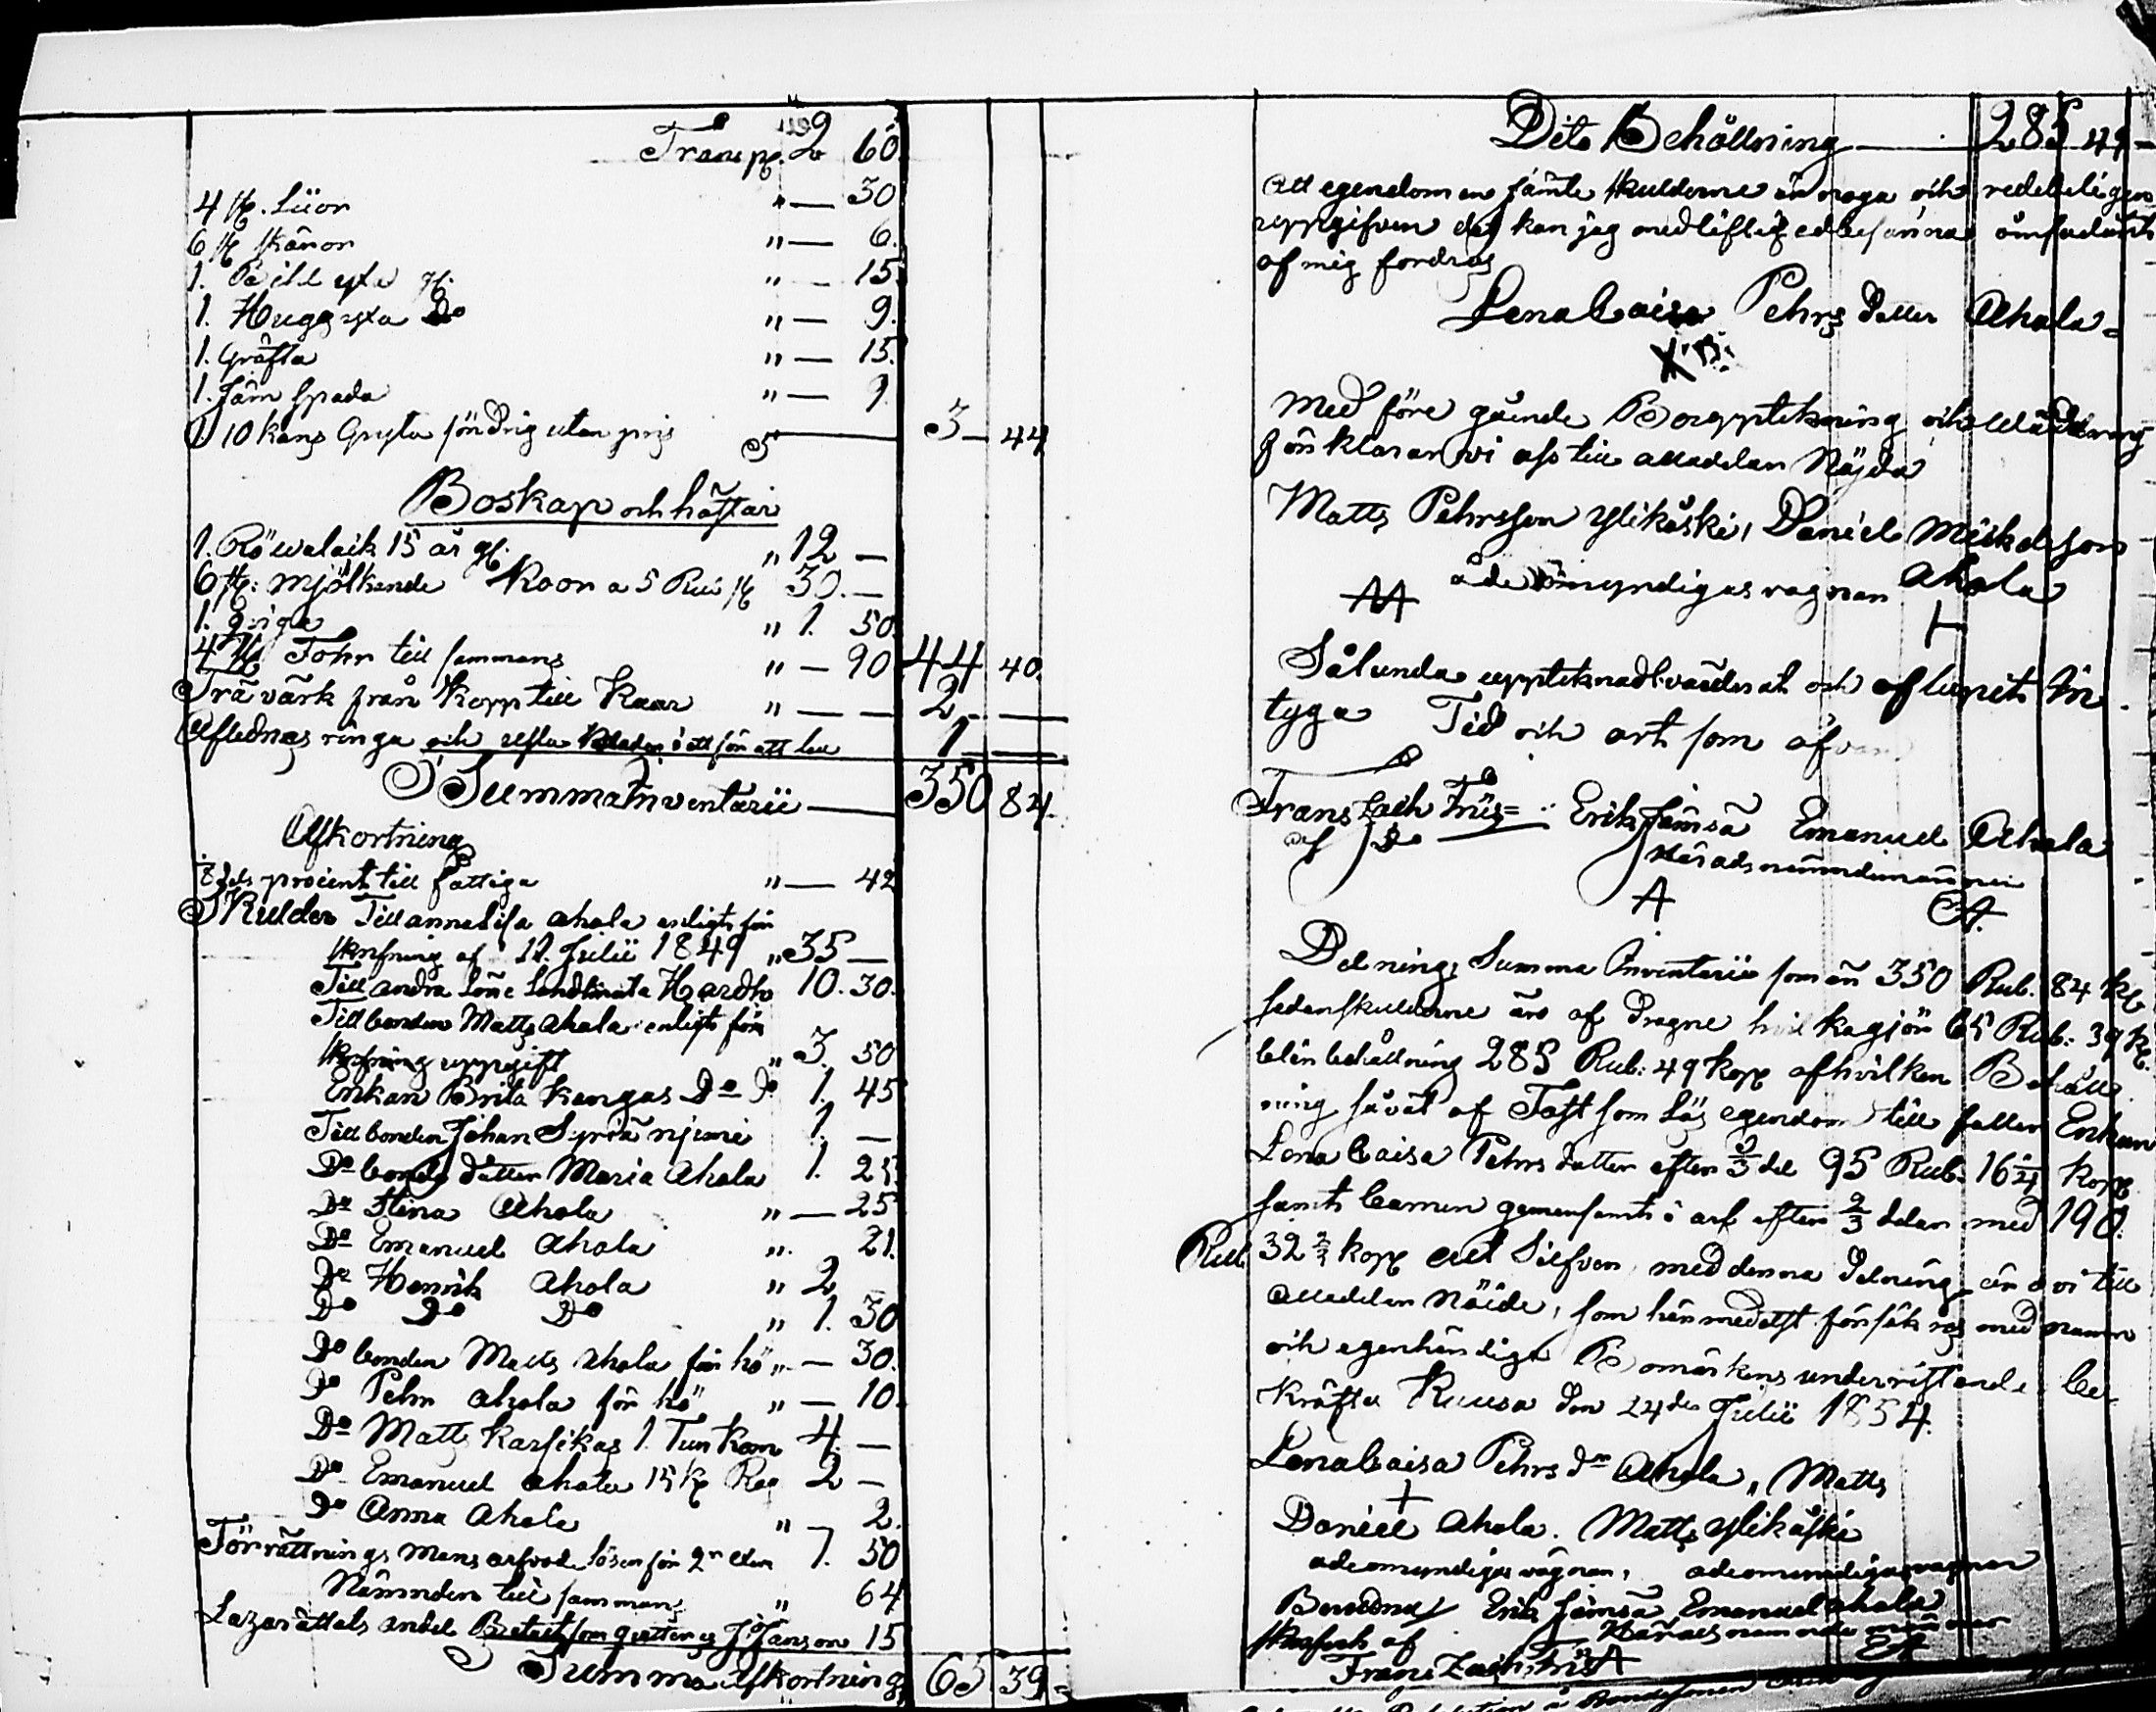 Transp. 2 60
4 st. Liior " — 30
6 st skäror " — 6.
1. Bill yxa " — 15
1. Huggyxa Do " — 9.
1. Gräfta " — 15.
1. Järn Spada " — 9
1 10 kans Gryta söndrig utan pris 3 — 44
Boskap och hästar
1. Röd valack 15 år " 12 —
6 st: mjölkande Koor a 5 Rub st 30. —
1. qviga " 1. 50
4 st Tohr till sammans " — 90 44 40.
Trä värk från kopp till Kaar " — — 2 —
Aflednes ringa och 1 —
Summa Inventarii — 350 84.
Afkortning
procent till fattiga " — 42
Skulder Till annaLisa ahola enligt för
skrifning af 11. Julii 1849 " 35 —
Till andra 10. 30.
Till bonden Matts Ahola enligt för
skrifning uppgift " 3. 50
Enkan Brita Kangas Do Do 1. 45
Till bonden Johan Syriä njemi 1. —
Do bonde dotter Maria Ahola 1. 25
Do Stina Ahola " — 25
Do Emanuel Ahola " 21.
Do Henrik Ahola " 2 —
Do Do Do " 1. 30
Do bonden Matts Ahola för hö " — 30.
Do Pehr Ahola för hö " — 10.
Do Matts Karsikas 1. Tun korn 4. —
Do Emanuel Ahola 15 kp Rog 2 —
Do Anna Ahola " — 2.
Förrättnings Mans arfvode lösen för 7. 50
Nämnden till samman " 64
Lazarättals andel Betalt som qvitteras J Janson 15
Summa Afkortning 65 39
Dito Behållning — 285 49 —
Att egendomen jämte skulderne är noga och redeligen
uppgifven det kan jag med liflig ed besanna om sådant
af mig fordras
Lena Caisa Pehrs dotter Ahola
Med före gående Boupptekning och Wärdering
förklarar vi oss till alladelar Nöjda
Matts Pehrsson Ylikåski, Daniel Mickelson
å de omyndigas vägnar Ahola
Sålunda uppteknadt värderat och aflupit in
tyga Tid och ort som ofvan
Frans Zach Friis Erik Jämsä Emanuel Ahola
Härads nämndemänner
Delning, Summa Inventarii som är 350 Rub. 84 kp
sedan skulderne äro af dragne hvilka gjör 65 Rub: 39 kp.
blir behållning 285 Rub: 49 kop af hvilken Behåll
ning såväl af Fast som Lös egendom till faller Enkan
Lena Caisa Pehrs dotter efter 1/3 del 95 Rub. 16 1/4 kop
samt barnen gemensamt i arf efter 2/3 delar med 190.
Rub 32 2/3 kop allt Silfver, med denna delning är vi till
alladelar Nöide, som härmedelst försäk ras med namn
och egenhändiga Bomärkens underristande be
kräfta Ruusa den 24de Julii 1854.
Lena Caisa Pehrs dr Ahola, Matts
Daniel Ahola. Matts Ylikåski
ade omyndigas vägnar, ade omyndigas vagnar
Erik Jämsä Emanuel Ahola
af Härads nämnde männer
Frans Zach. Friis